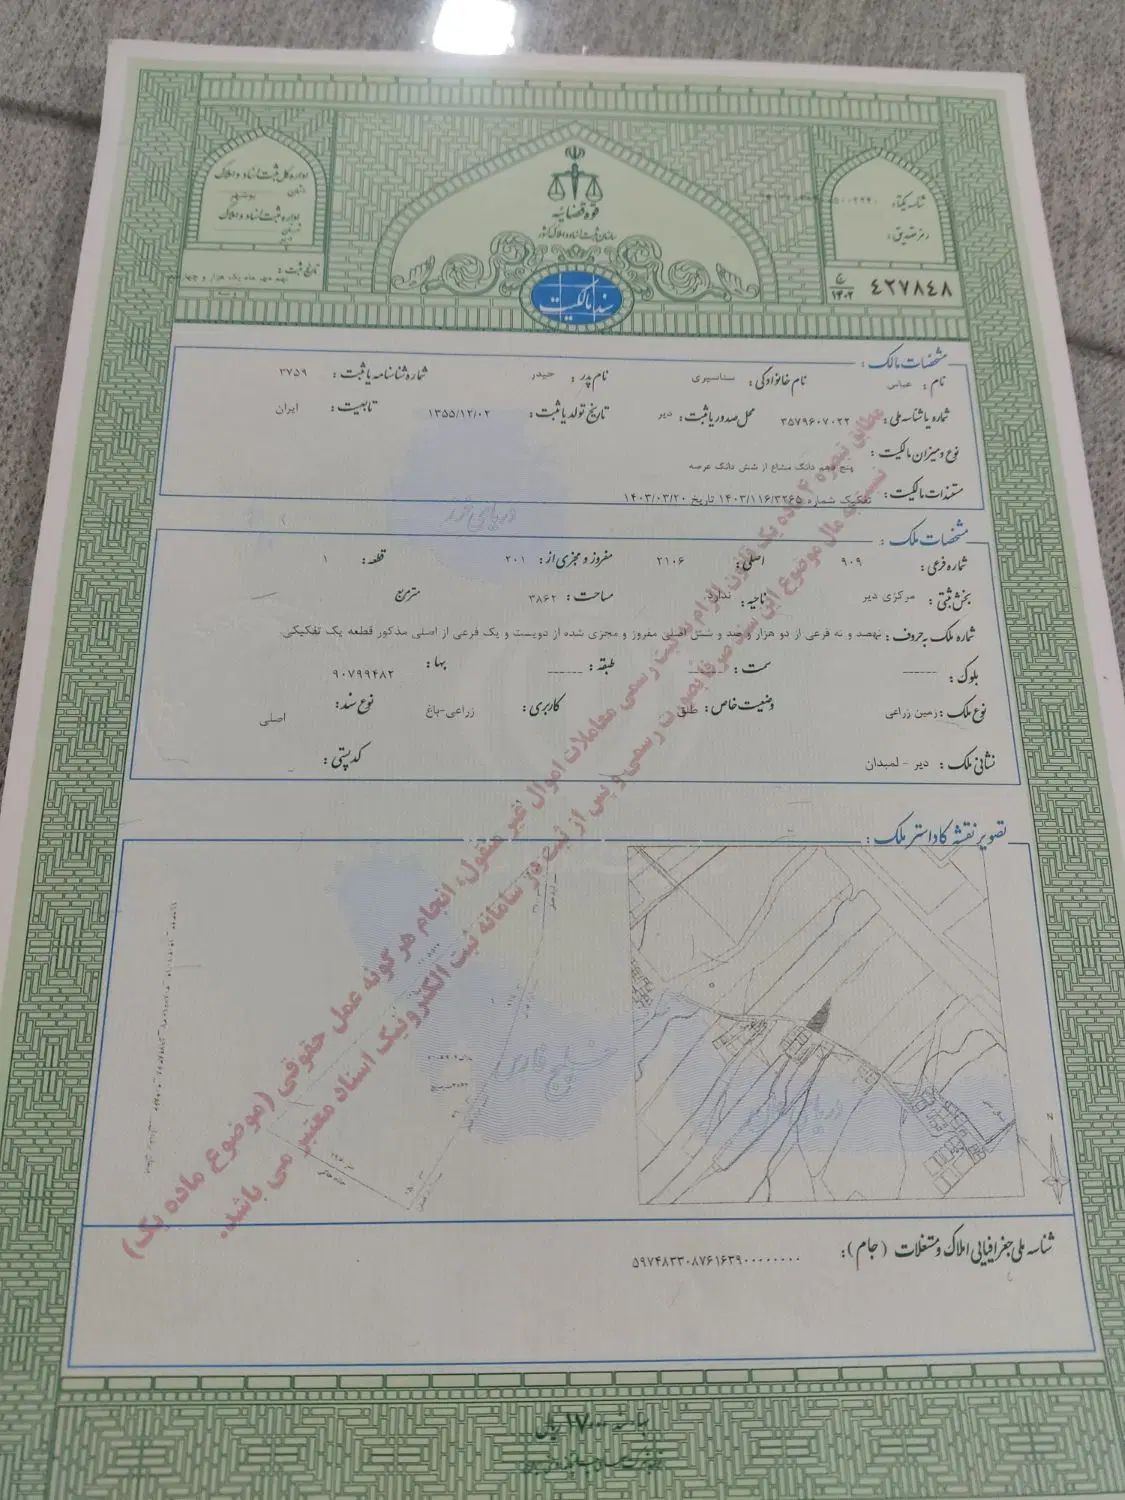 قوه قضائیه
سازمان ثبت اسناد و املاک کشور
سند مالکیت
اداره کل ثبت اسناد و املاک
استان بوشهر
اداره ثبت اسناد و املاک
شهرستان دیر
تاریخ ثبت :
شناسه یکتا :
رمز تصدیق :
ج ۱۴۰۲ ۴۲۷۸۴۸
مشخصات مالک :
نام : عباس نام خانوادگی : سناسیری نام پدر : حیدر شماره شناسنامه یا ثبت : ۳۷۵۹
شماره یا شناسه ملی : ۳۵۷۹۶۰۷۰۲۲ محل صدور یا ثبت : دیر تاریخ تولد یا ثبت : ۱۳۵۵/۱۲/۰۲ تابعیت : ایران
نوع و میزان مالکیت : پنج دهم دانگ مشاع از شش دانگ عرصه
مستندات مالکیت : تفکیک شماره ۱۴۰۳/۱۱۶/۳۲۶۵ تاریخ ۱۴۰۳/۰۳/۲۰
مشخصات ملک :
شماره فرعی : ۹۰۹ اصلی : ۲۱۰۶ مفروز و مجزی از : ۲۰۱ قطعه : ۱
بخش ثبتی : مرکزی دیر ناحیه : ندارد مساحت : ۳۸۶۲ مترمربع
شماره ملک به حروف : نهصد و نه فرعی از دو هزار و صد و شش اصلی مفروز و مجزی شده از دویست و یک فرعی از اصلی مذکور قطعه یک تفکیکی
بلوک : ------ سمت : ------ طبقه : ------ بها : ۹۰۷۹۹۴۸۲
نوع ملک : زمین زراعی وضعیت خاص : طلق کاربری : زراعی-باغ نوع سند : اصلی
نشانی ملک : دیر - لمبدان کدپستی :
تصویر نقشه کاداستر ملک :
مطابق تبصره ۴ ماده یک قانون الزام به ثبت رسمی معاملات اموال غیر منقول، انجام هرگونه عمل حقوقی (موضوع ماده یک)
نسبت به مال موضوع این سند صرفا بصورت رسمی و پس از ثبت در سامانه ثبت الکترونیک اسناد معتبر می باشد.
دریای خزر
خلیج فارس
N
شناسه ملی جغرافیایی املاک و مستغلات (جام) : ۵۹۷۴۸۳۳۰۸۷۶۱۶۳۹۰۰۰۰۰۰۰۰